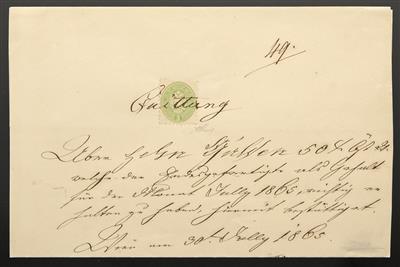 49.
Quittung
Über Zehn Gulden 50 x ÖW
welche der Endesgefertigte als Gehalt
für den Monat Jully 1865, richtig er
halten zu haben, hiermit bestättiget.
Wien am 30t. Jully 1865.